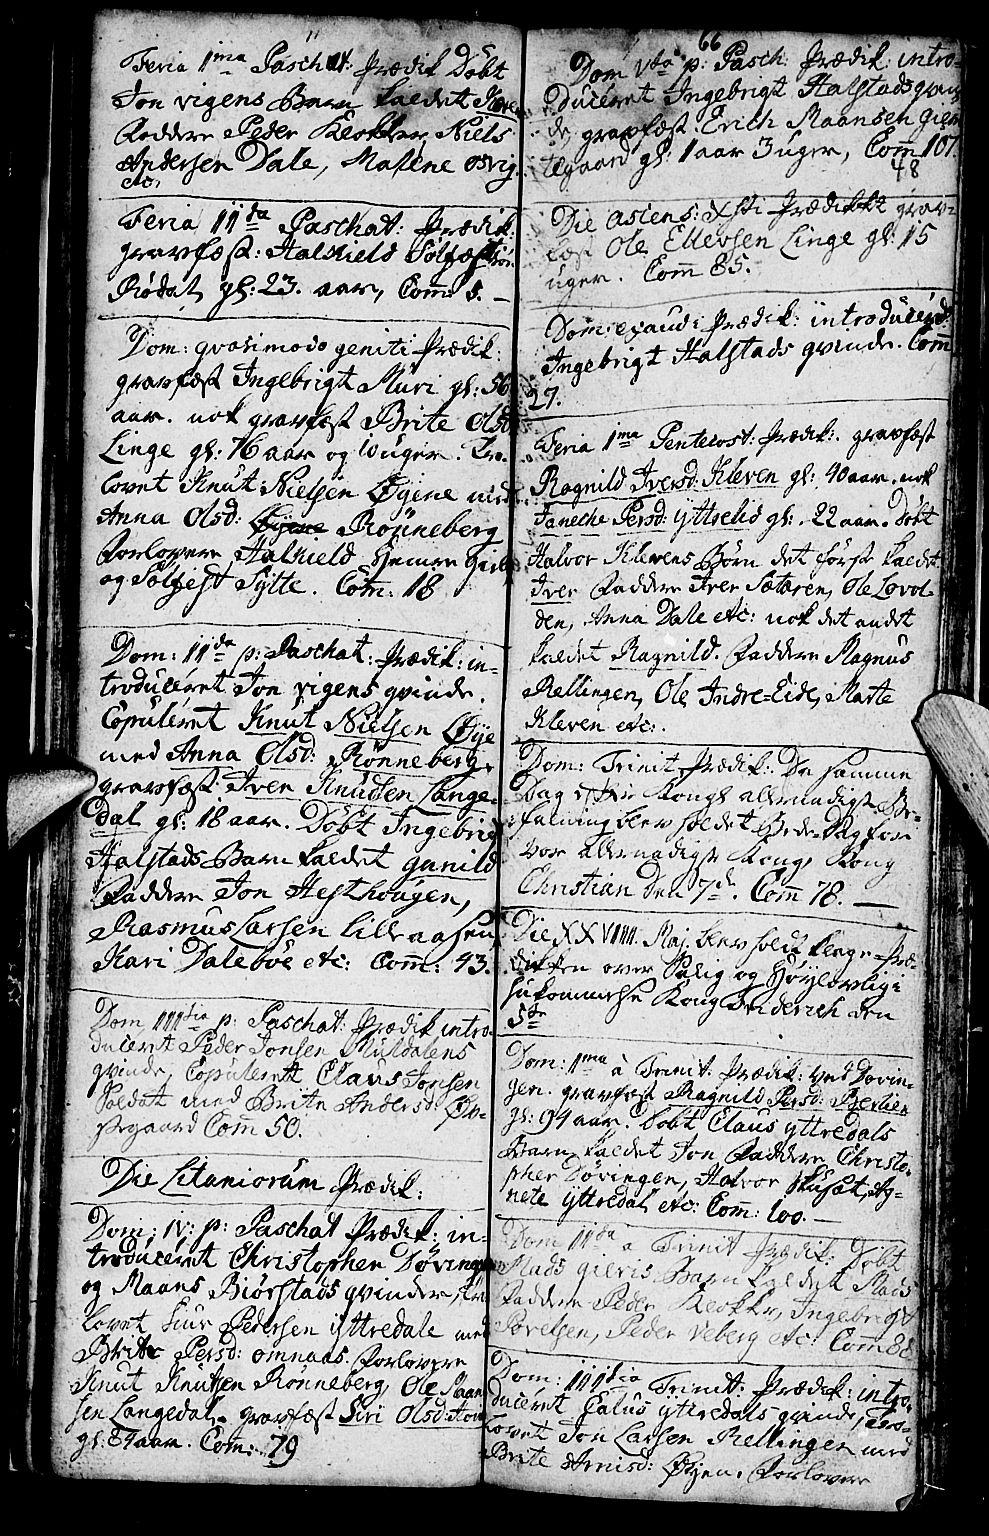 Feria 1ma Paschat: Prædik Døbt
Jon vigens Barn kaldet
Faddere Peder Klokker, Niels
Andersen Dale, Malene osvig
etc.
Feria 11da Paschat: Prædik:
gravfæst: Halkield Sølfæst
Rødal gl: 23. aar, Com: 5. —
Dom: qvasimodo geniti Prædik:
gravfæst Ingebrigt Muri gl: 56
aar. nok gravfæst Brite Olsd
Linge gl: 76 aar og 10 uger. Tro-
lovet Knut Nielsen Øyene med
Anna Olsd: Øyene Rønneberg
Forlovere Halkield
og Sølfest Sylte. Com: 18
Dom: 11da p: Paschat: Prædik: in-
troduceret Jon vigens qvinde.
Copuleret Knut Nielsen Øye
med Anna Olsd: Rønneberg,
gravfæst: Iver Knudsen Lange-
dal gl: 18 aar. Døbt Ingebrigt
Halstads Barn kaldet gunild
Faddere Jon Hesthougen,
Rasmus Larsen Lilleaasen
Kari Daleboe etc: Com: 43.
Dom 111tia p: Paschat: Prædik intro-
duceret Peder Jonsen Muldalens
qvinde, Copuleret Claus Jonsen
Soldat med Brite Andersd: Øv-
stegaard Com 50.
Die Litaniorum Prædik:
Dom: 1V: p: Paschat Prædik: in-
troduceret Christopher Døvingen
og Maans Biørstads qvinder, tro-
lovet Siur Pedersen yttredale med
Brite Persd: omnaas. Forlovere
Knut Knutsen Rønneberg, Ole Maan
sen Langedal. gravfæst Siri Olsd:
gl: 84 aar. Com: 79
66
Dom Vta p: Pasch: Prædik: intro-
duceret Ingebrigt Halstads qvin
de, gravfæst: Erich Maansen Giem
tegaard gl: 1 aar 3 uger, Com 107.
48
Die ascens: Xsti Prædikt grav-
fæst Ole Ellevsen Linge gl: 15
uger. Com 85.
Dom: exaudi Prædik: introducerd:
Ingebrigt Halstads qvinde. Com
27.
Feria 1ma Pentecost: Prædik: gravfæst
Ragnild Iversd: Kleven gl: 40 aar. nok
Janeche Persd: yttrelid gl: 22 aar. Døbt
Halvor Klevens Børn det først kaldet
Iver Faddere Iver Sætaren, Ole Lovol-
den, Anna Dale etc: nok det andet
kaldet Ragnild. Faddere Magnus
Rellingen, Ole Indre=Eide, Marte
Kleven etc:
Dom: Trinit Prædik: Da samme
Dag efter Kongl allernaadigst Be-
falning blev holdet Bede=Dag for
vor allernadigst Kong, Kong
Christian den 7de. Com 78. —
Die XXVIIII. Maj. blev holdt klage=Præ-
diken over Salig og Høylovlig
ihukommelse Kong Friderich den
5te
Dom: 1ma à Trinit: Prædik: ved Døvin-
gen. gravfæst Ragnild Persd:
gl: 94 aar. Døbt Claus yttredals
Barn kaldet Jon Faddere Christo-
pher Døvingen, Halvor Ag-
nete yttredal etc: Com: 100. —
Dom 11da a Trinit Prædik: Døbt
Mads gieris Barn kaldet Mads
Faddere Peder Klokker, Ingebrigt
Povelsen, Peder Veberg etc: Com 88
Dom: 111tia Trinit: Prædik: intro-
duceret yttredals qvinde, Tro-
lovet Jon Larsen Rellingen med
Brite Arnisd: Øyen. Forlovere